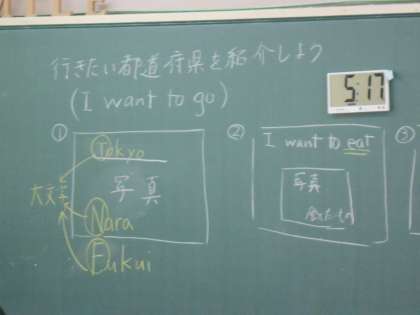 行きたい都道府県を紹介しよう
(I want to go)
5:17
①
Tokyo
写真
大文字
Nara
Fukui
②
I want to eat
写真
③